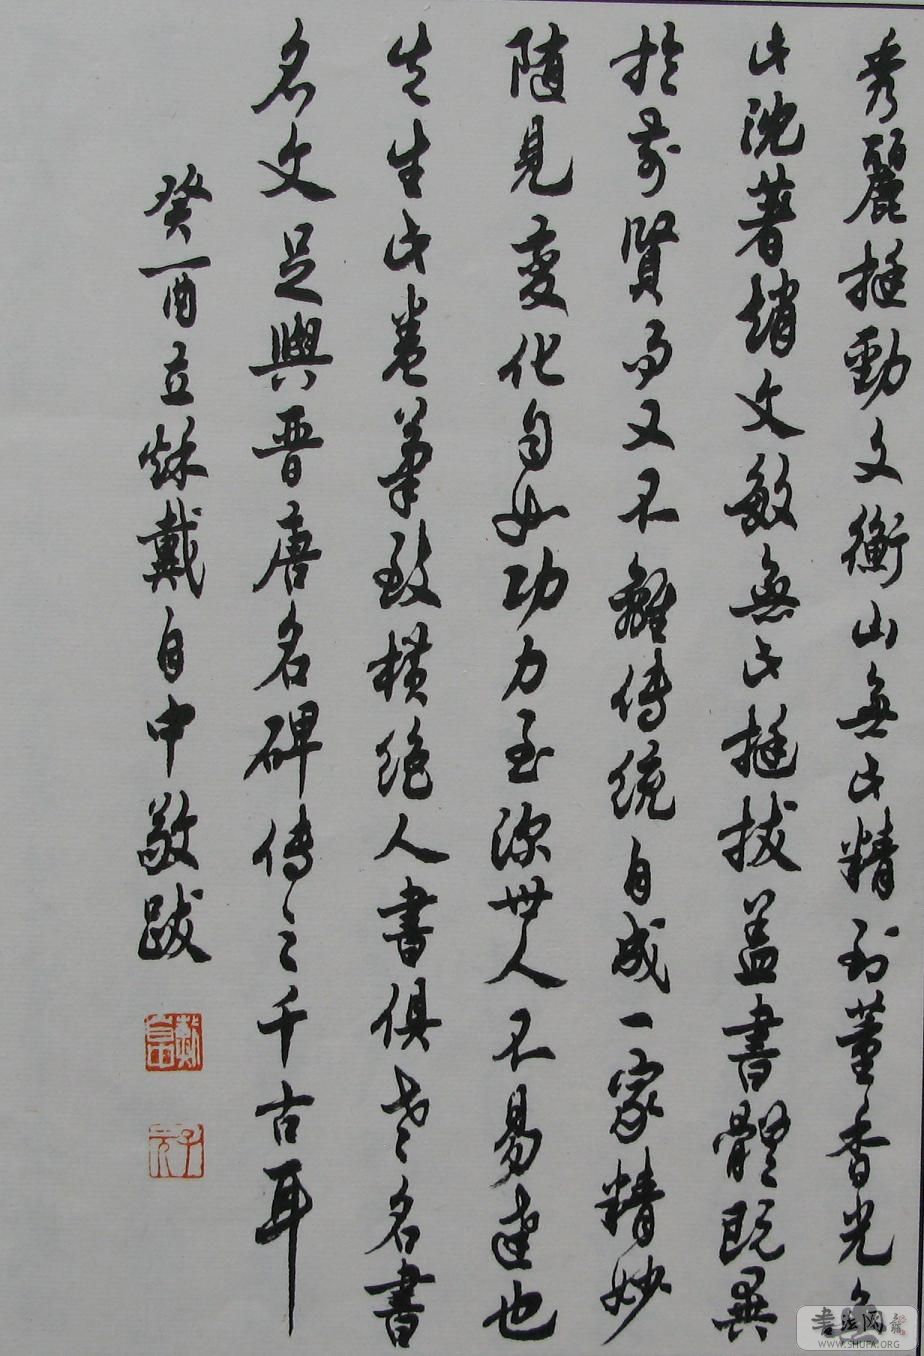 秀麗挺勁文衡山無此精到董香光無
此沈著趙文敏無此挺拔蓋書體既異
於前賢而又不離傳統自成一家精妙
隨見變化自如功力至深世人不易達也
先生此卷筆致橫絕人書俱老名書
名文足與晋唐名碑傳之千古耳
癸酉立秌戴自中敬跋
戴自中
書法网
WWW.SHUFA.ORG